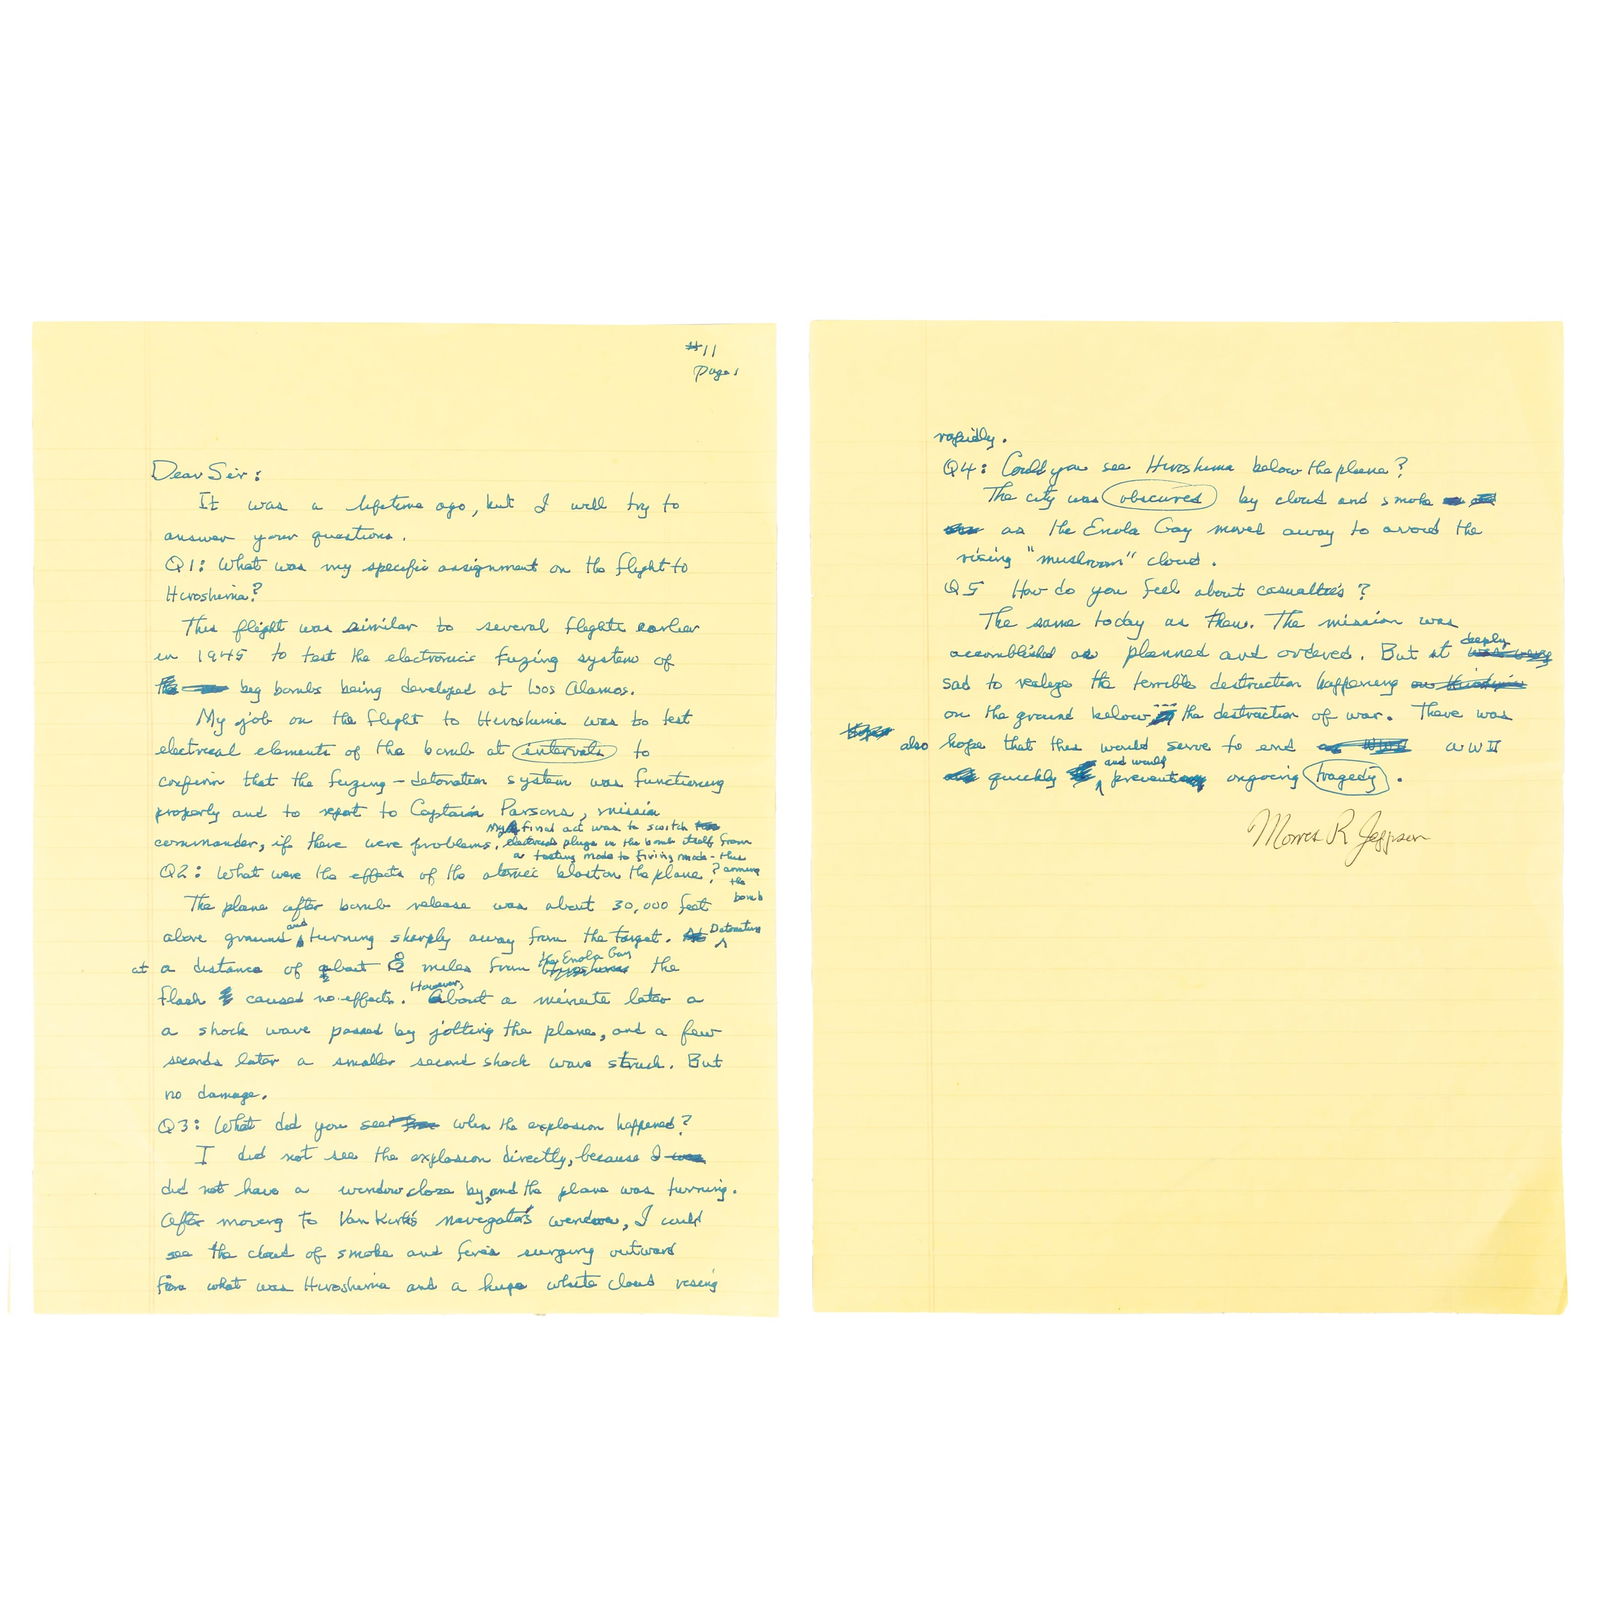 #11
Page 1
Dear Sir:
It was a lifetime ago, but I will try to
answer your questions.
Q1: What was my specific assignment on the flight to
Hiroshima?
This flight was similar to several flights earlier
in 1945 to test the electronic fuzing system of
big bombs being developed at Los Alamos.
My job on the flight to Hiroshima was to test
electrical elements of the bomb at intervals to
confirm that the fuzing-detonation system was functioning
properly and to report to Captain Parsons, mission
commander, if there were problems. My final act was to switch
electrical plugs in the bomb itself from
a testing mode to firing mode - this
arming
the
bomb
Q2: What were the effects of the atomic blast on the plane?
The plane after bomb release was about 30,000 feet
above ground and turning sharply away from the target. Detonation
at a distance of about 8 miles from the Enola Gay the
flash caused no effects. However, about a minute later a
a shock wave passed by jolting the plane, and a few
seconds later a smaller second shock wave struck. But
no damage.
Q3: What did you see when the explosion happened?
I did not see the explosion directly, because I
did not have a window close by, and the plane was turning.
After moving to Van Kirk's navigator's window, I could
see the cloud of smoke and fires surging outward
from what was Hiroshima and a huge white cloud rising
rapidly.
Q4: Could you see Hiroshima below the plane?
The city was obscured by cloud and smoke
as the Enola Gay moved away to avoid the
rising "mushroom" cloud.
Q5 How do you feel about casualties?
The same today as then. The mission was
accomblished as planned and ordered. But it deeply
sad to realize the terrible destruction happening
on the ground below the destruction of war. There was
also hope that this would serve to end WWII
quickly and would prevent ongoing tragedy.
Morris R Jeppson